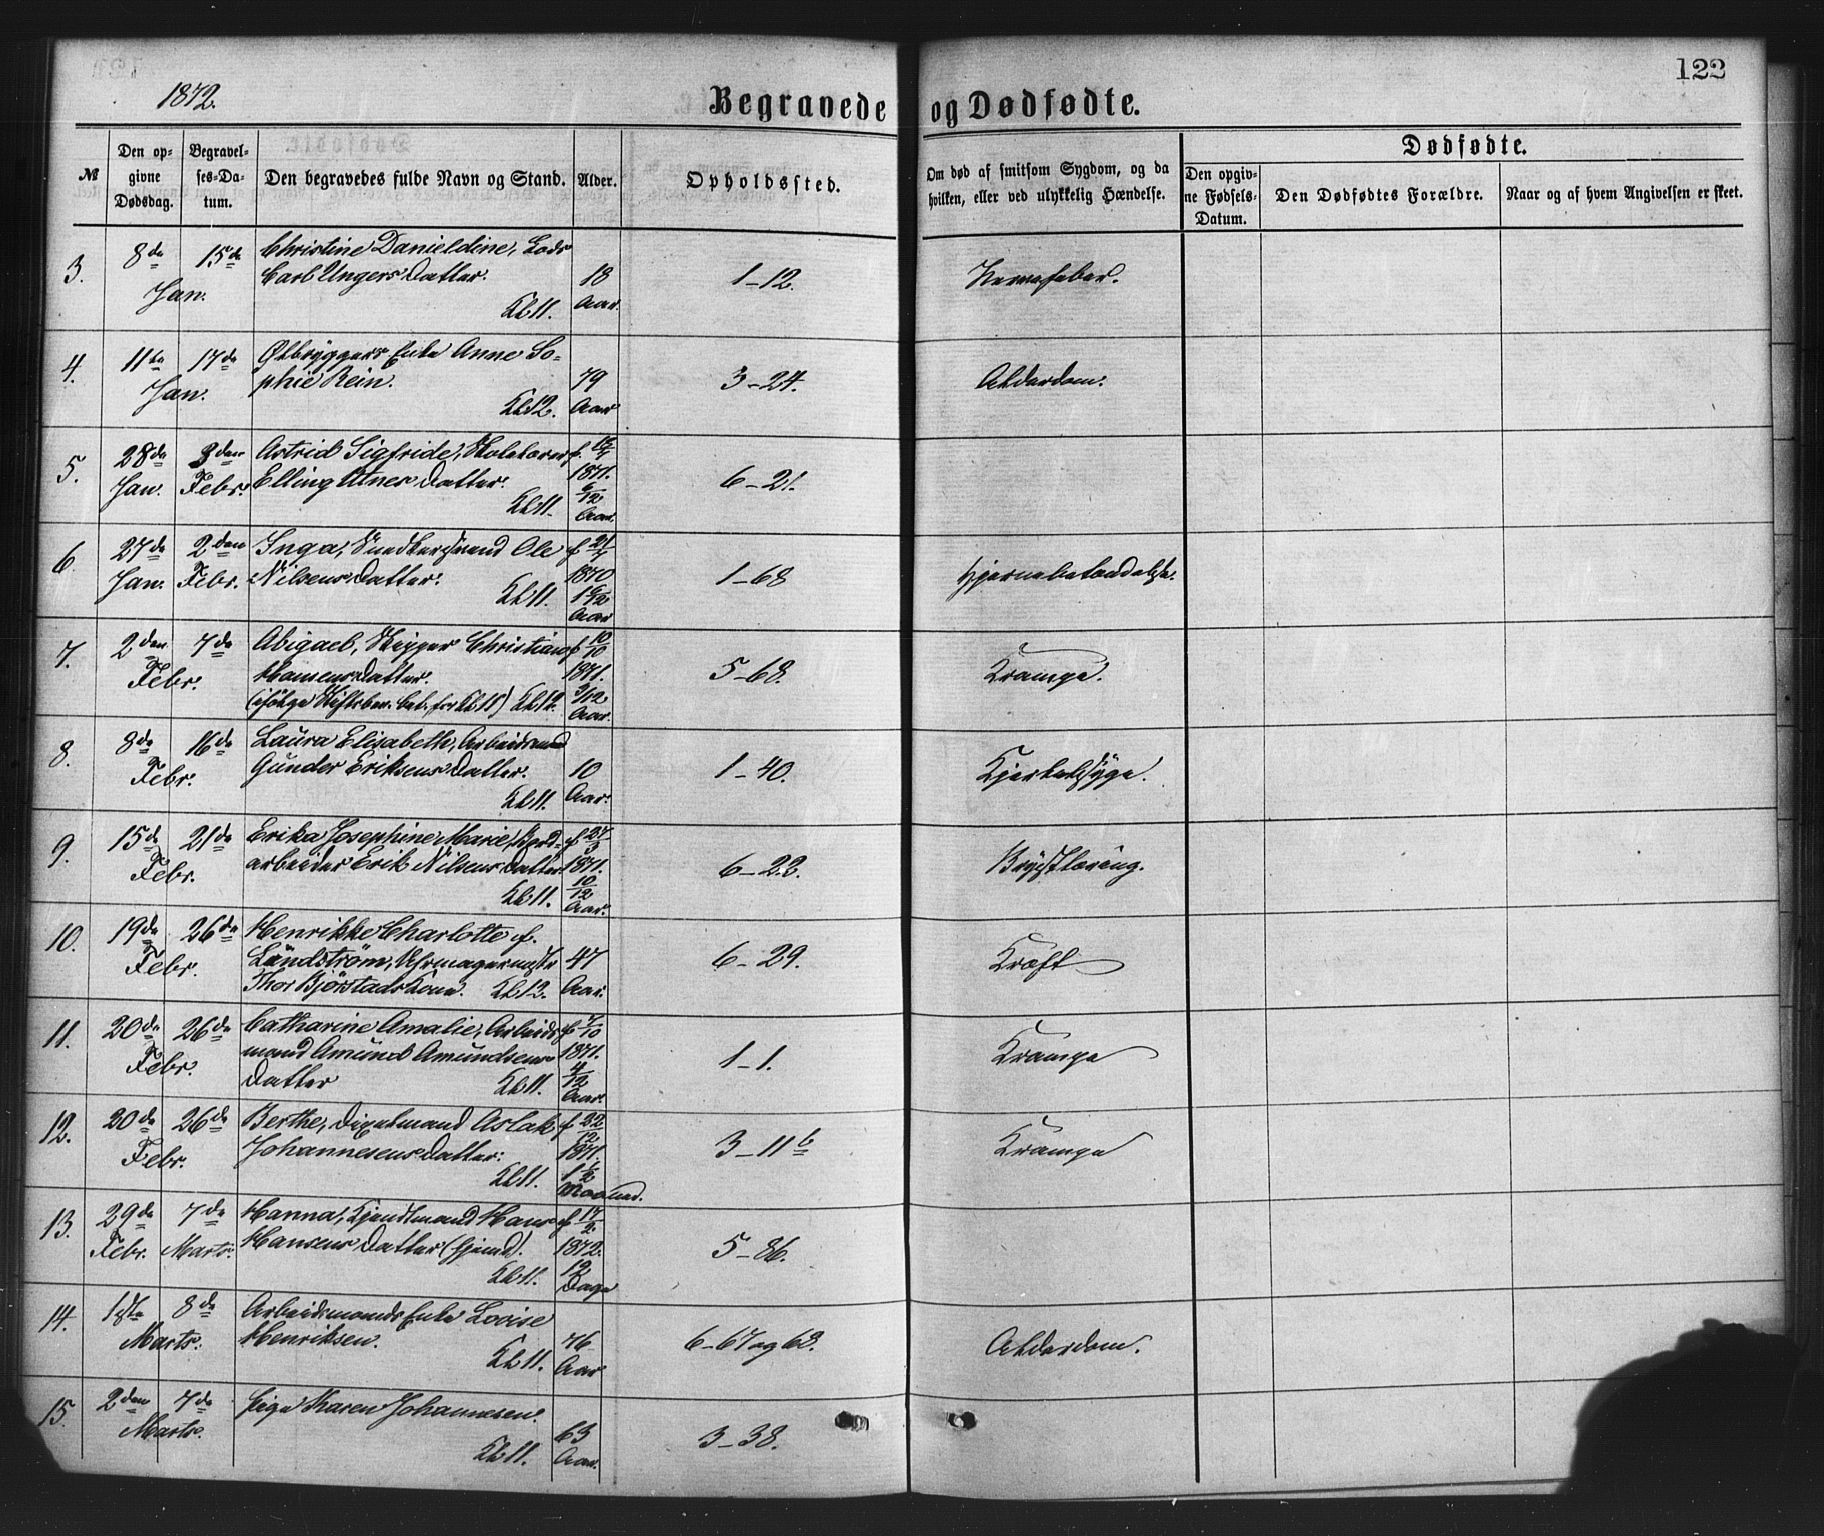 122
1872.
Begravede og Dødfødte.
№
Den opgivne Dødsdag.
Begravelses-Datum.
Den begravedes fulde Navn og Stand.
Alder.
Opholdssted.
Om død af smitsom Sygdom, og da hvilken, eller ved ulykkelig Hændelse.
Dødfødte.
Den opgivne Fødsels-Datum.
Den Dødfødtes Forældre.
Naar og af hvem Angivelsen er skeet.
3. 8de 15de Christine Danieldine, Lods
Jan. Carl Ungers Datter. 18 1-12. Nervefeber.
Kl. 11. Aar.
4. 11te 17de Ølbryggers Enke Anne So-
Jan. phie Rein. 79 3-24. Alderdom.
Kl. 12. Aar
5. 28de 3den Astrid Sigfride, Skolelærer f. 16/7
Jan. Febr. Elling Utnes Datter. 1871. 6-21.
Kl. 11. 6/12 Aar.
6. 27de 2den Inga, Ole f. 21/7
Jan. Febr. Nilsens Datter. 1870 1-68 Hjernebetændelse.
Kl. 11. 1 6/12 Aar
7. 2den 7de Abigael, Skipper Christian f. 10/10
Febr. Hansens Datter. 1871. 5-68. Krampe.
(ifølge Skiftsbev. bet. for Kl. 11) Kl. 12. 3/12 Aar.
8. 8de 16de Laura Elisabeth, Arbeidsmand
Febr. Gunder Eriksens Datter. 10 1-40. Kjertelsyge.
Kl. 11. Aar.
9. 15de 21de Erika Josephine Marie, Jord- f. 27/3
Febr. arbeider Erik Nilsens Datter 1871. 6-22. Brysttæring.
Kl. 11. 10/12 Aar.
10. 19de 26de Henrikke Charlotte f.
Febr. Lundstrøm, Uhrmagermestr 47 6-29. Kræft
Thor Bjørstads Kone. Kl. 12. Aar.
11. 20de 26de Catharine Amalie, Arbeids- f. 7/10
Febr. mand Amund Amundsens 1871. 1-1. Krampe
Datter Kl. 11. 4/12 Aar.
12. 20de 26de Berthe, Aslak f. 22/12
Febr. Johannesens Datter. 1871. 3-11b Krampe
Kl. 11. 1 1/2 Maaned.
13. 29de 7de Hanna, Hans f. 17/2
Febr. Marts. Hansens Datter 1872. 5-86.
Kl. 11. 12 Dage
14. 1ste 8de Arbeidsmands Enke Lovise
Marts. Henriksen. 76 6-67 og 68. Alderdom.
Kl. 11. Aar
15. 2den 7de Pige Karen Johannesen.
Marts. 63 3-38.
Kl. 11. Aar.